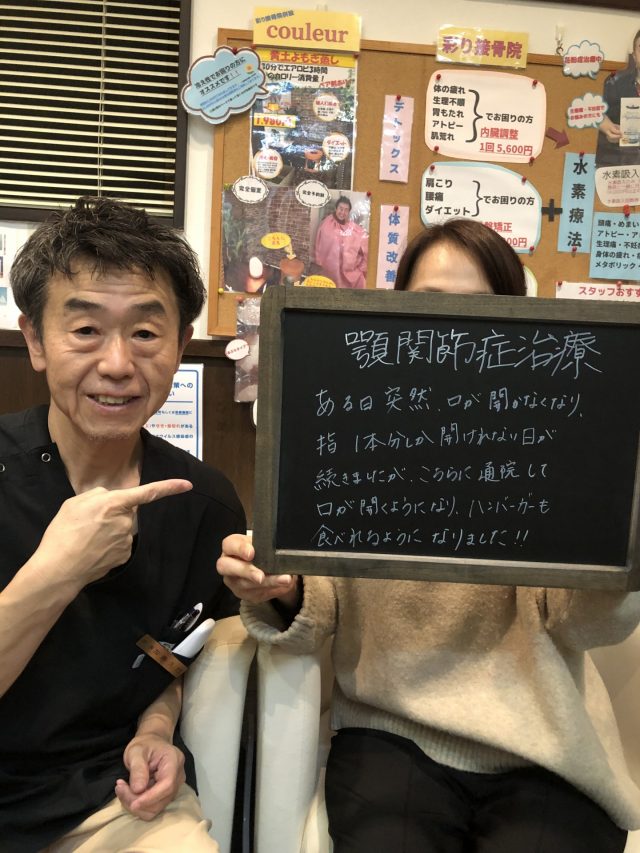 彩り接骨院併設
couleur
黄土よもぎ蒸し
30分でエアロビ3時間
のカロリー消費量!
完全個室
完全予約制
ダイエット
デトックス
体質改善
彩り接骨院
体の疲れ
生理不順
胃もたれ
アトピー
肌荒れ
でお困りの方
内臓調整
1回5,600円
肩こり
腰痛
ダイエット
でお困りの方
+
水素療法
水素吸入
頭痛・めまい
アトピー・ア
生理痛・不妊
身体の疲れ・
メタボリック
スタッフおすす
顎関節症治療
ある日突然、口が開かなくなり、
指1本分しか開けれない日が
続きましたが、こちらに通院して
口が開くようになり、ハンバーガーも
食べれるようになりました!!